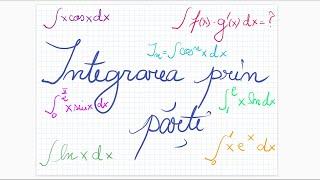 ∫x cos x dx
∫f(x)·g'(x)dx=?
Iₙ=∫cosⁿx dx
Integrarea prin
părți
∫₀^(π/2) x sin x dx
∫₁^e x ln dx
∫ln x dx
∫₀¹ x eˣ dx